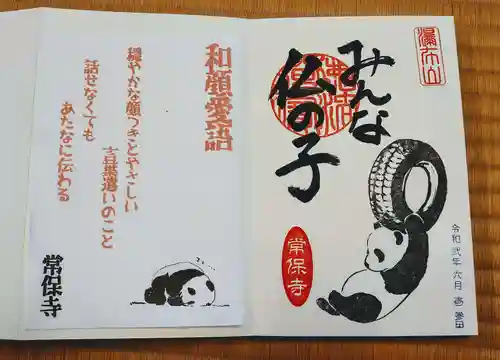 瀑布山
みんな
仏の子
常保寺
令和弐年六月壱日
和顔愛語
穏やかな顔つきとやさしい
言葉遣いのこと
話せなくても
あたなに伝わる
常保寺